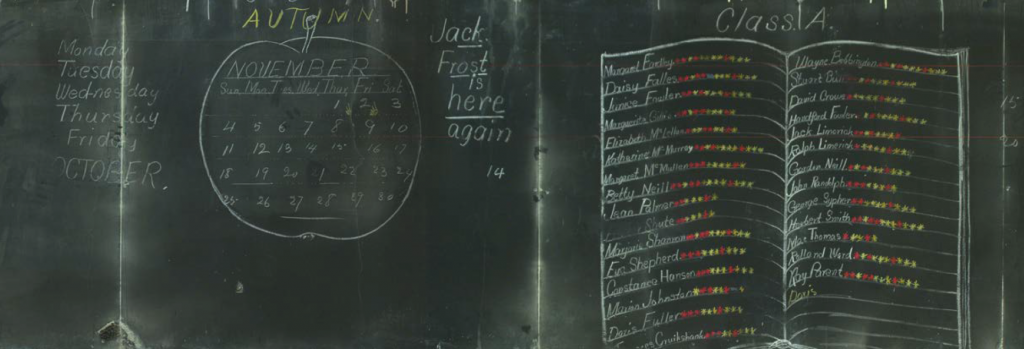 AUTUMN.
Monday
Tuesday
Wednesday
Thursday
Friday
OCTOBER.
NOVEMBER
Sun Mon Tues Wed Thur Fri Sat
1 2 3
4 5 6 7 8 9 10
11 12 13 14 15 16 17
18 19 20 21 22 23 24
25 26 27 28 29 30
Jack
Frost
is
here
again
14
Class. A.
Daisy Falles
Elizabeth McMullen
Katherine McMurray
Margaret McMullen
Betty Neill
Isaac Palmer
Marjorie Shannon
Eva Shepherd
Constance Hanson
Marion Johnston
Doris Fuller
Cruikshank
Wayne
Stuart
David Crowe
Jack Limerick
Ralph Limerick
Gordon Neill
John Randolph
George Sypher
Hubert Smith
Max Thomas
Rolland Ward
Ray Parent
Doris
15
20